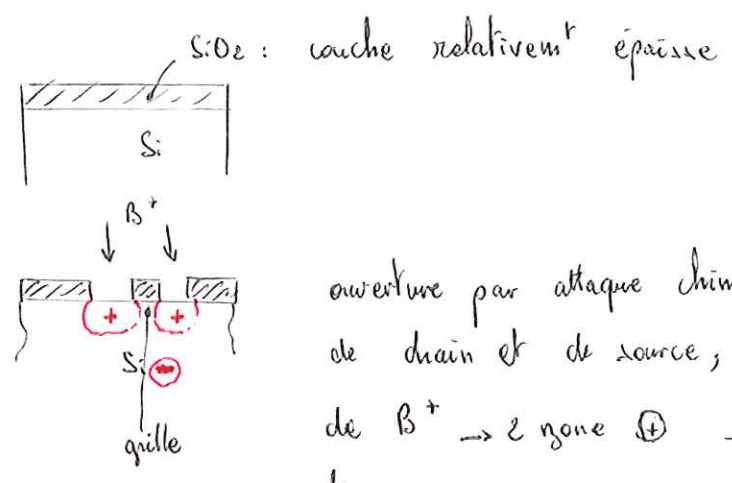 SiO2 : couche relativemt épaisse
Si
B+
+ +
ouverture par attaque chim
Si -
de drain et de source,
de B+ → 2 zone ⊕ -
grille